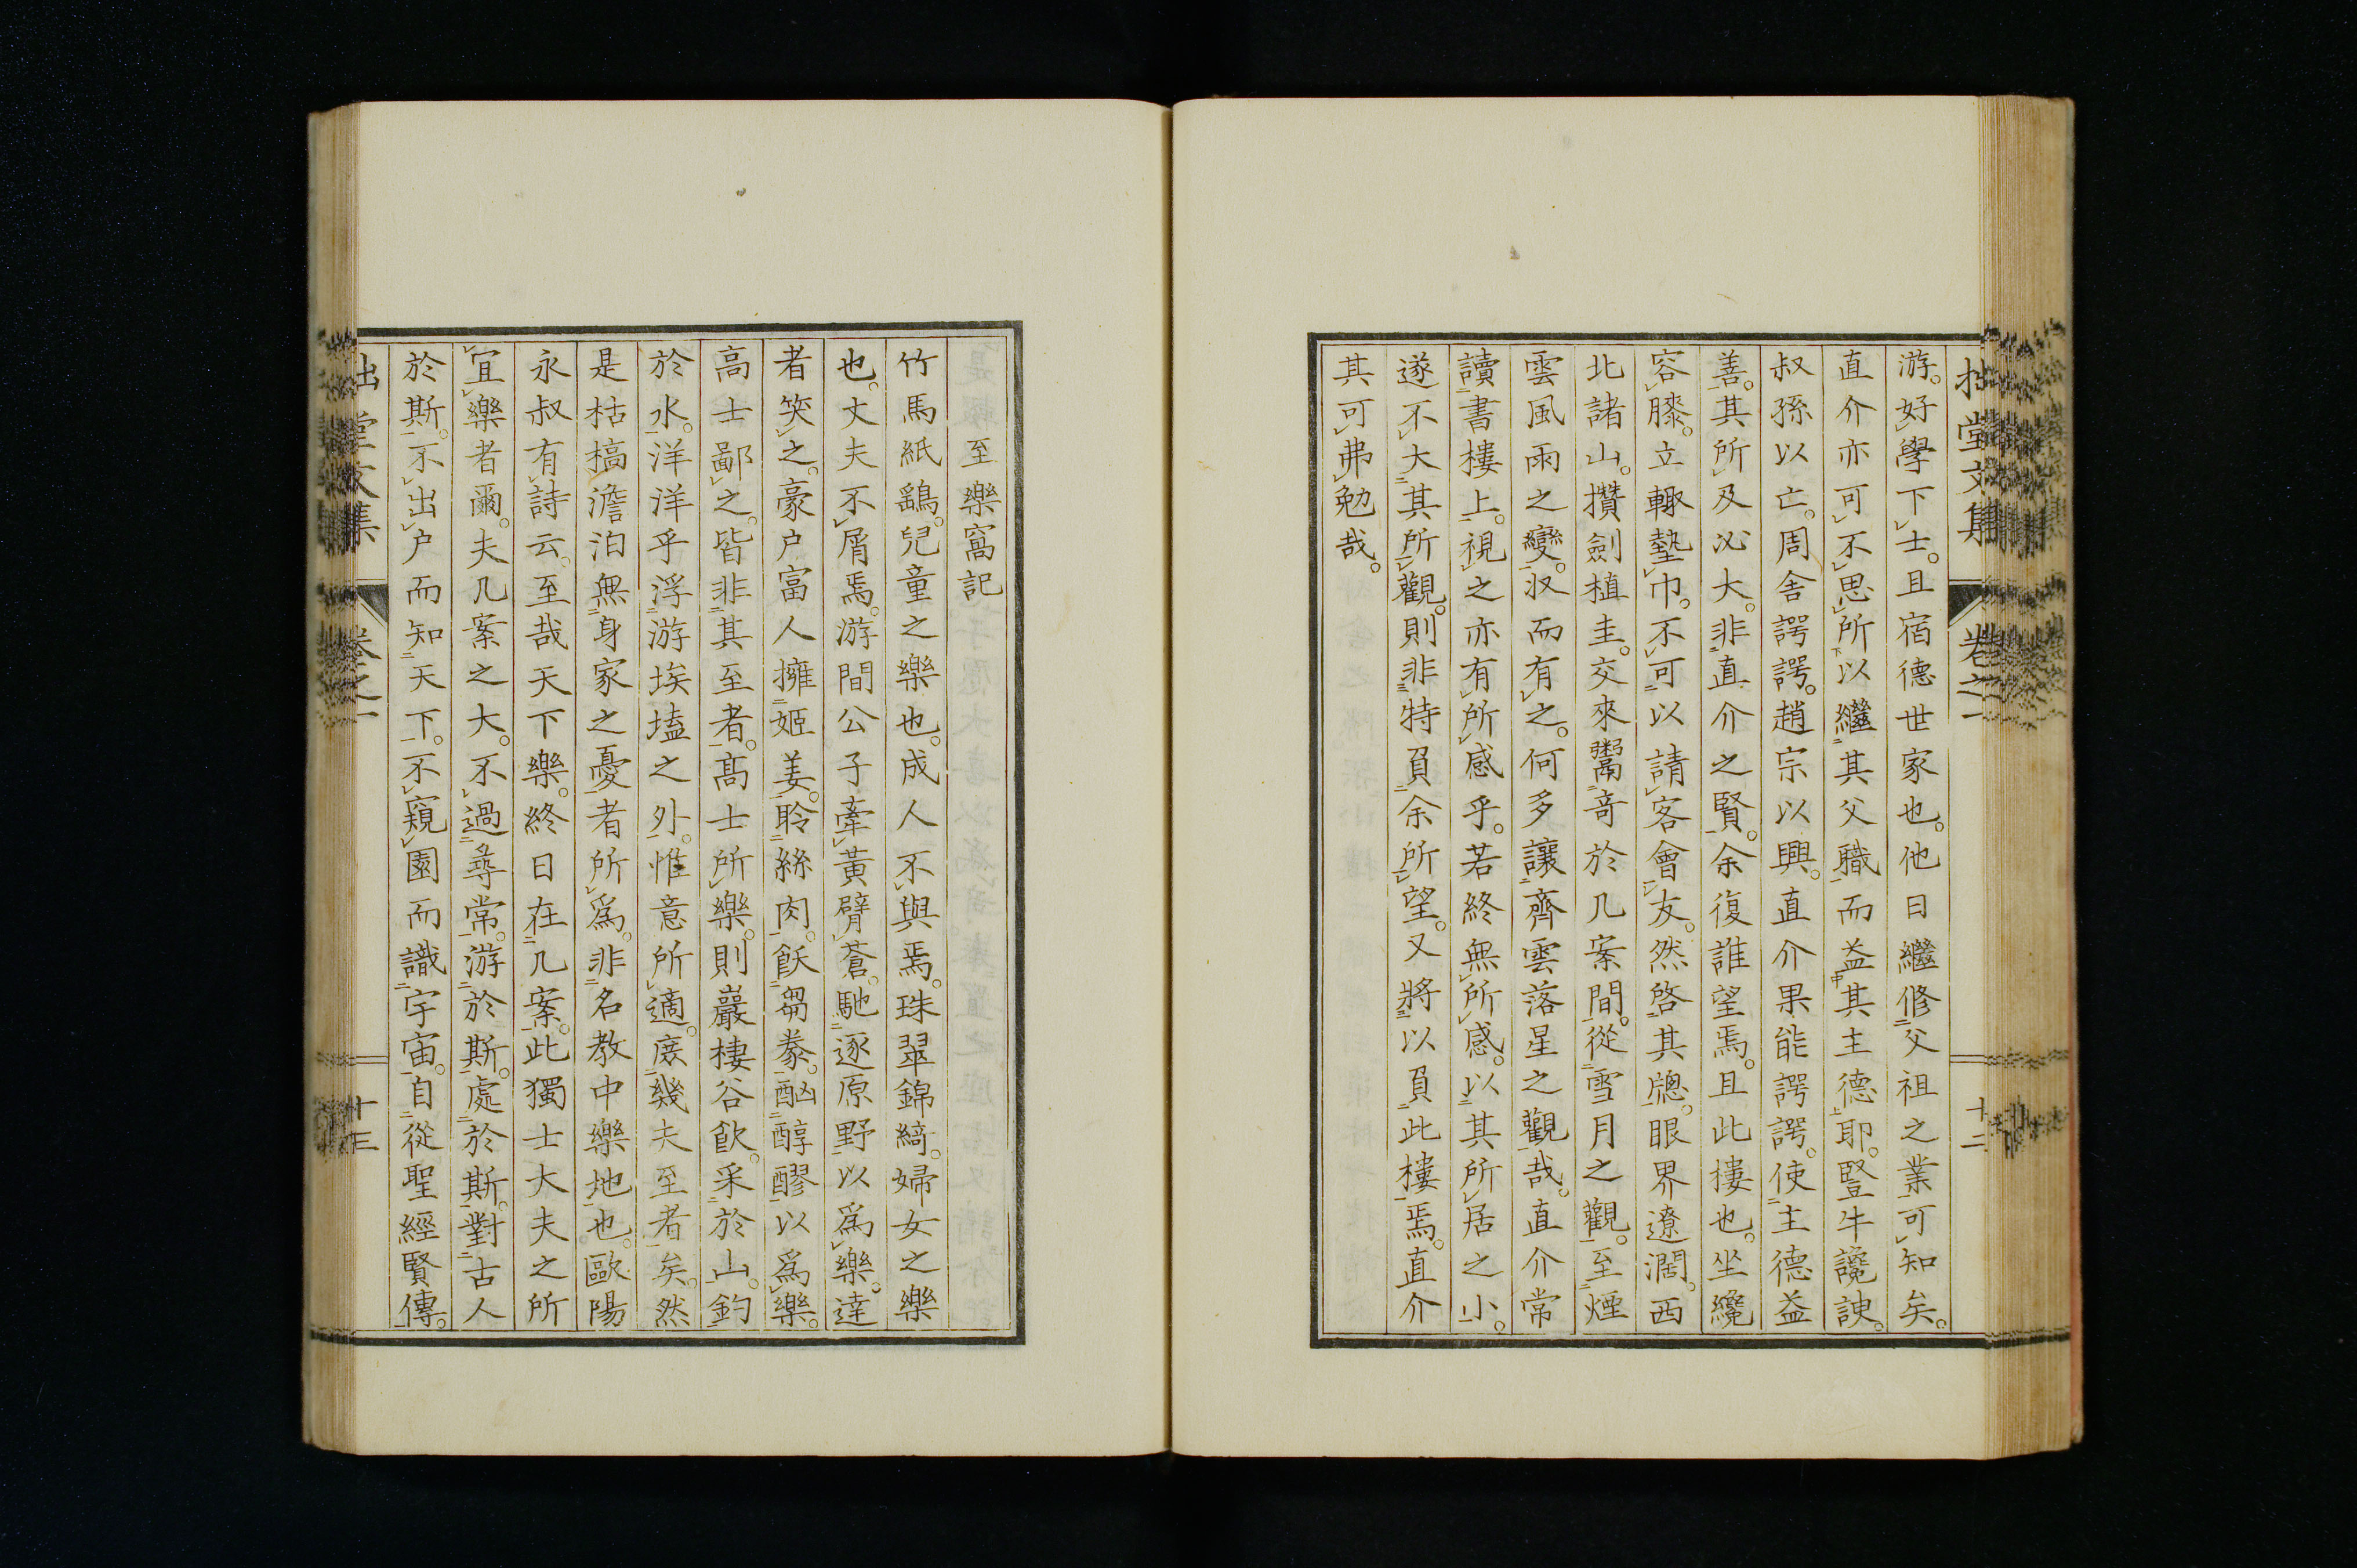 拙堂文集 卷之一 十二
游。好學下士。且宿德世家也。他日繼修父祖之業可知矣。
直介亦可不思所以繼其父職而益其主德耶。豎牛讒諛。
叔孫以亡。周舍諤諤。趙宗以興。直介果能諤諤。使主德益
善。其所及必大。非直介之賢。余復誰望焉。且此樓也。坐纔
容膝。立輙墊巾。不可以請客會友。然啓其牕。眼界遼濶。西
北諸山。攢劍植圭。交來鬻奇於几案間。從雪月之觀。至煙
雲風雨之變。収而有之。何多讓齊雲落星之觀哉。直介常
讀書樓上。視之亦有所感乎。若終無所感。以其所居之小。
遂不大其所觀。則非特負余所望。又將以負此樓焉。直介
其可弗勉哉。
至樂窩記
竹馬紙鷂。兒童之樂也。成人不與焉。珠翠錦綺。婦女之樂
也。丈夫不屑焉。游間公子牽黃臂蒼。馳逐原野以爲樂。達
者笑之。豪戶富人擁姬姜。聆絲肉。飫芻豢。酗醇醪以爲樂。
高士鄙之。皆非其至者。高士所樂。則巖棲谷飮。采於山。釣
於水。洋洋乎浮游埃壒之外。惟意所適。庶幾夫至者矣。然
是枯槁澹泊無身家之憂者所爲。非名教中樂地也。歐陽
永叔有詩云。至哉天下樂。終日在几案。此獨士大夫之所
宜樂者爾。夫几案之大。不過尋常。游於斯。處於斯。對古人
於斯。不出戶而知天下。不窺園而識宇宙。自從聖經賢傳。
拙堂文集 卷之一 十三